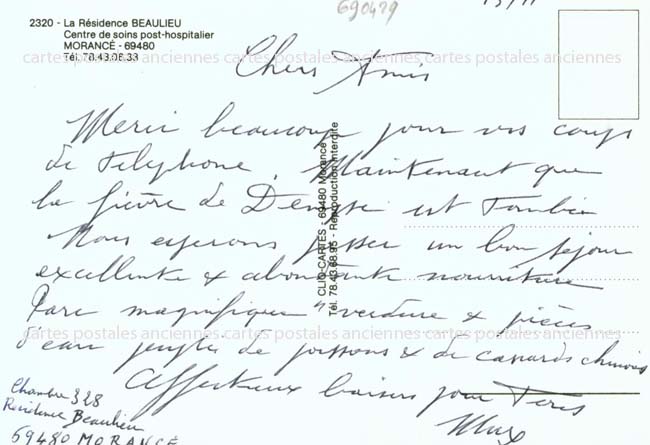 690479
2320 - La Résidence BEAULIEU
Centre de soins post-hospitalier
MORANCÉ - 69480
Tél. 78.43.06.33
Chers Amis
cartes postales anciennes cartes postales anciennes cartes postales anciennes
Merci beaucoup pour vos coups
de téléphone. Maintenant que
la fièvre de Denyse est tombée
Nous espérons passer un bon séjour
excellente & abondante nourriture
Parc magnifique verdure & pièces
d'eau peuplés de poissons & de canards chinois
cartes postales anciennes cartes postales anciennes cartes postales anciennes
Affectueux baisers pour
Chambre 328
Résidence Beaulieu
69480 MORANCÉ
CLIO-CARTES - 69480 Morancé
Tél. 78.43.68.95 - Reproduction interdite